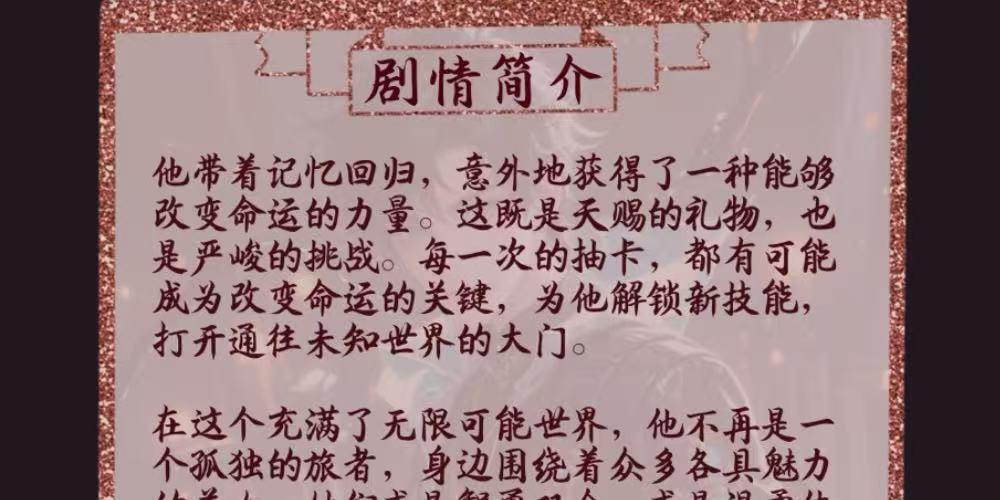 剧情简介
他带着记忆回归，意外地获得了一种能够
改变命运的力量。这既是天赐的礼物，也
是严峻的挑战。每一次的抽卡，都有可能
成为改变命运的关键，为他解锁新技能，
打开通往未知世界的大门。
在这个充满了无限可能世界，他不再是一
个孤独的旅者，身边围绕着众多各具魅力